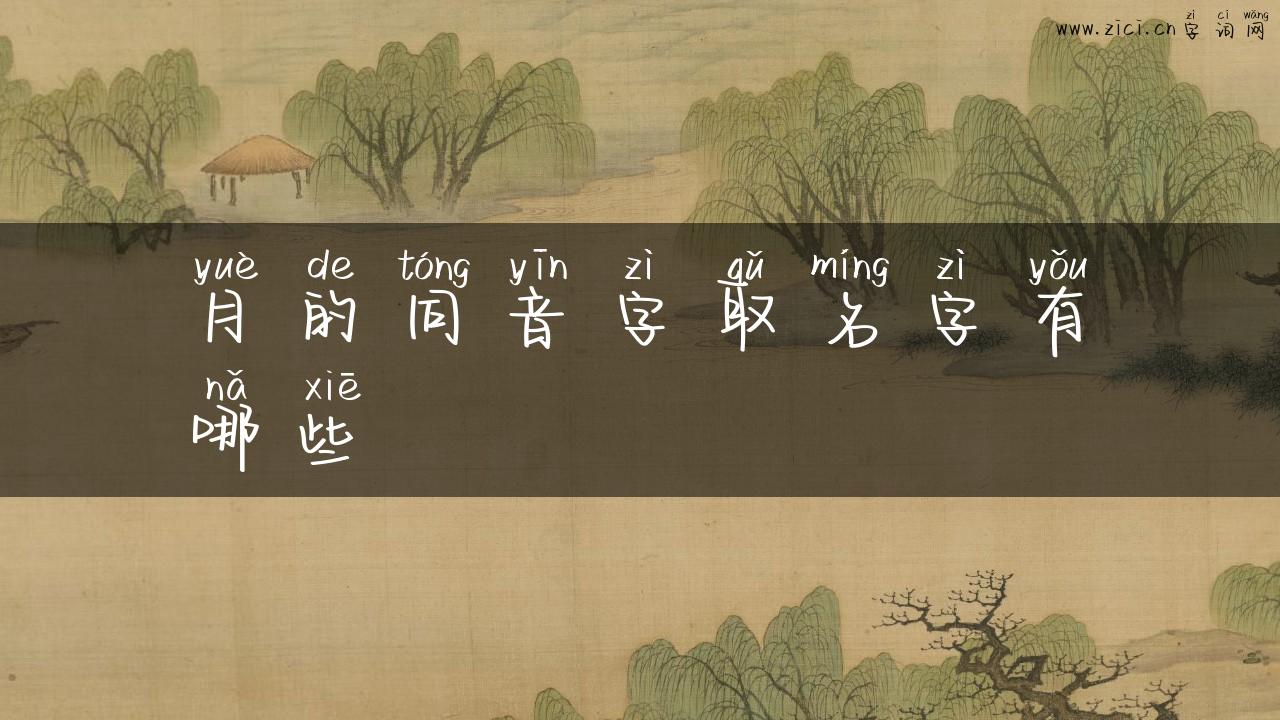 zì cí wǎng
www.zici.cn 字 词 网
yuè de tóng yīn zì qǔ míng zì yǒu
月 的 同 音 字 取 名 字 有
nǎ xiē
哪 些